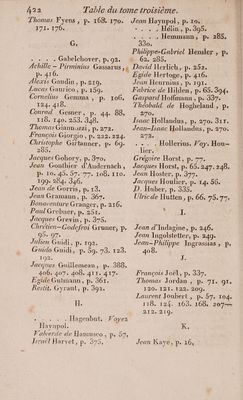 422 Table du tome troisième.
Thomas Fyens, p. 168. 170.
171. 176.
G.
. . . . . Gabelchover, p. 92.
Achille - Pirminius Gassarus,
p. 416.
Alexis Gaudin, p. 219.
Lucas Gauricο, p. 159.
Cornelius Gemma, p. 106.
124. 418.
Conrad Gesner, p. 44. 88.
118. 140. 253. 348.
Thomas Giannozzi, p. 272.
François Giorgio, p. 222. 224.
Christophe Girtanner, p. 69.
285.
Jacques Gohory, p. 370.
Jean Gonthier d'Andernach,
p. 10. 45. 57. 77. 108. 110.
199. 284. 346.
Jean de Gorris, p. 13.
Jean Gramann, p. 367.
Bonaventure Granger, p. 216.
Paul Grebner, p. 251.
Jacques Grevin, p. 375.
Chrétien-Godefroi Gruner, p.
95. 97.
Julien Guidi, p. 192.
Guido Guidi, p. 59. 73. 123.
192.
Jacques Guillemeau, p. 388.
406. 407. 408. 411. 417.
Egide Gutmann, p. 361.
Restit. Gyraut, p. 392.
H.
. . . . . Hagenbut. Voyez
Haynpol.
Valverde de Hamusco, p. 57.
Israël Harvet, p. 375.
Jean Haynpol, p. 10.
. . . . Hélin, p. 395.
. . . . Hemmann, p. 285.
330.
Philippe-Gabriel Hensler, p.
62. 285.
David Herlich, p. 252.
Egide Hertoge, p. 416.
Jean Heurnius, p. 191.
Fabrice de Hilden, p. 65. 394.
Gaspard Hoffmann, p. 337.
Théobald de Hogheland, p.
270.
Isaac Hollandus, p. 270. 311.
Jean-Isaac Hollandus, p. 270.
272.
. . . . Hollerius. Voy. Houlier.
Grégoire Horst, p. 77.
Jacques Horst, p. 65. 247. 248.
Jean Hoster, p. 377.
Jacques Houlier, p. 14. 56.
D. Huber, p. 335.
Ulric de Hutten, p. 66. 75. 77.
I.
Jean d'Indagine, p. 246.
Jean Ingolstetter, p. 249.
Jean-Philippe Ingrassias, p.
408.
J.
François Joël, p. 337.
Thomas Jordan, p. 71. 91.
120. 121. 122. 209.
Laurent Joubert, p. 57. 104.
118. 124. 163. 168. 207—
212. 219.
K.
Jean Kaye, p. 26.